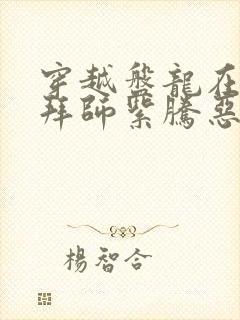 穿越盤龍在
拜師紫騰惡
楊智合